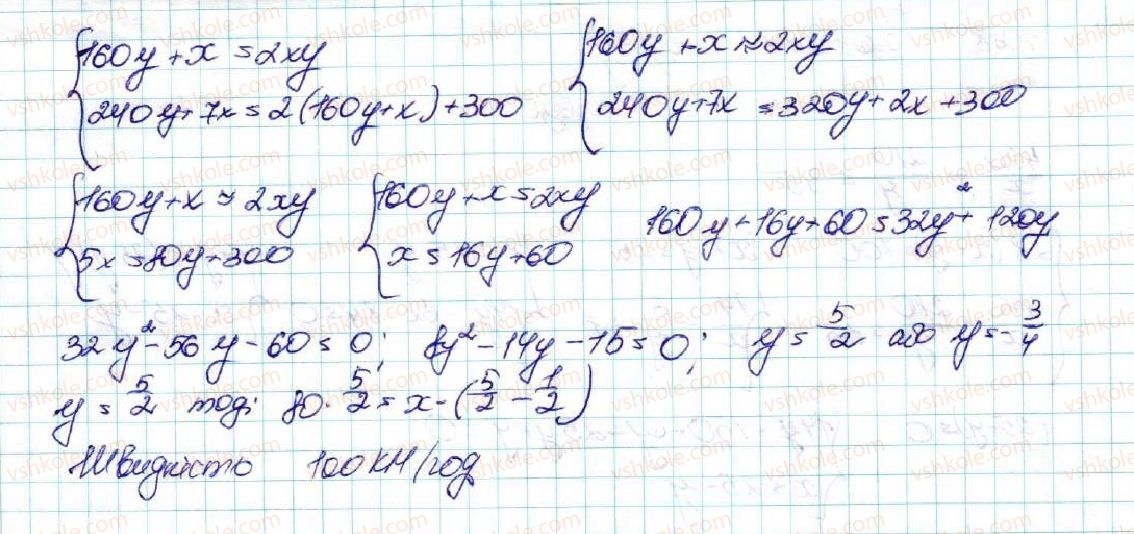 160y + x = 2xy
240y + 7x = 2(160y + x) + 300
160y + x = 2xy
240y + 7x = 320y + 2x + 300
160y + x = 2xy
5x = 80y + 300
160y + x = 2xy
x = 16y + 60
160y + 16y + 60 = 32y² + 120y
32y² - 56y - 60 = 0; 8y² - 14y - 15 = 0; y = 5/2 або y = -3/4
y = 5/2 тоді 80 · 5/2 = x · (5/2 - 1/2)
Швидкість 100 км/год